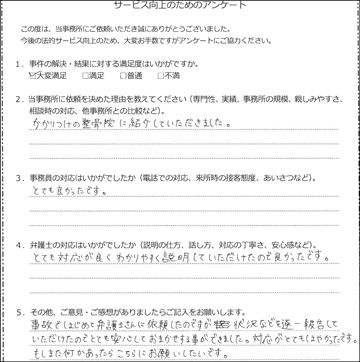 サービス向上のためのアンケート
この度は、当事務所にご依頼いただき誠にありがとうございました。
今後の法的サービス向上のため、大変お手数ですがアンケートにご協力ください。
1．事件の解決・結果に対する満足度はいかがですか。
☑大変満足　□満足　□普通　□不満
2．当事務所に依頼を決めた理由を教えてください（専門性、実績、事務所の規模、親しみやすさ、
相談時の対応、他事務所との比較など）。
かかりつけの整骨院に紹介していただきました。
3．事務員の対応はいかがでしたか（電話での対応、来所時の接客態度、あいさつなど）。
とても良かったです。
4．弁護士の対応はいかがでしたか（説明の仕方、話し方、対応の丁寧さ、安心感など）。
とても対応が良くわかりやすく説明していただけたので良かったです。
5．その他、ご意見・ご感想がありましたらご記入をお願いします。
事故ではじめて弁護士さんに依頼したのですが状況などを逐一報告して
いただけたのでとても安心しておまかせする事ができました。対応がとてもはやかったです。
もしまた何かあったらこちらにお願いしたいです。